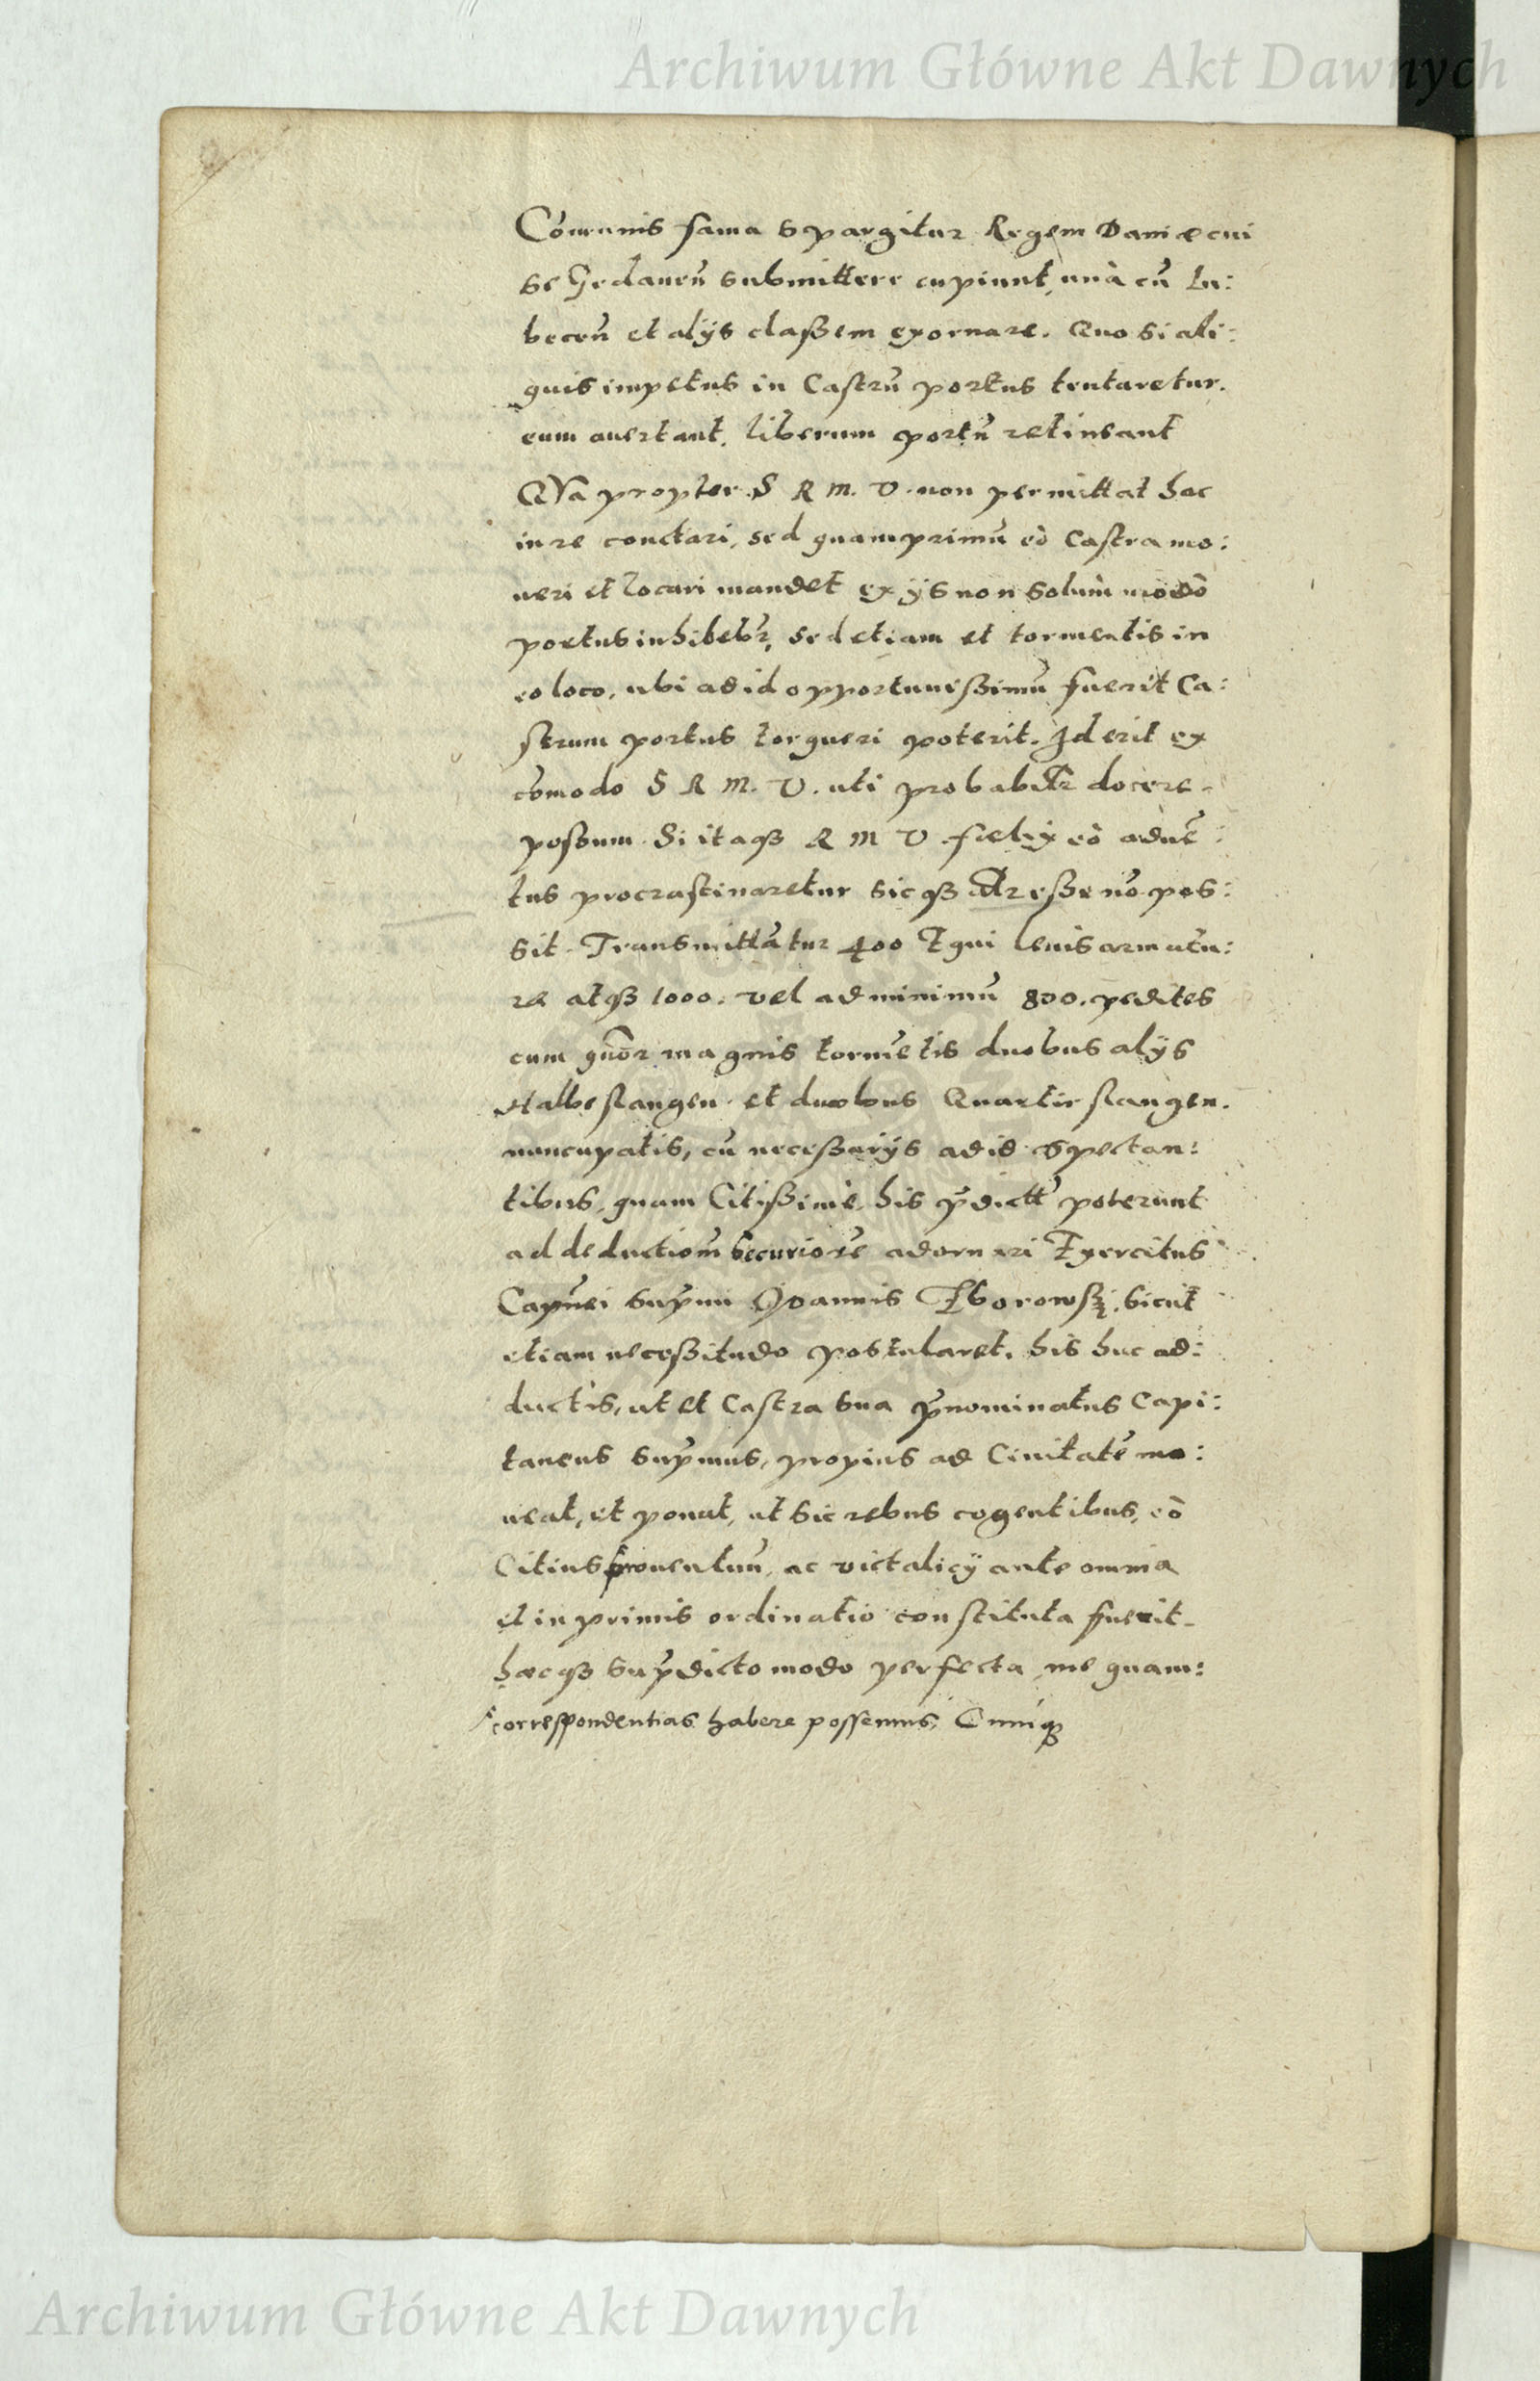 Archiwum Główne Akt Dawnych
Com̃unis fama spargitur Regem Daniæ cui
se Gedanen̄ submittere cupiunt, unà cū Lu:
becen̄ et alijs claßem exornare. Quo si ali:
quis impetus in Castrū portus tentaretur.
eum auertant, liberum portū retineant
QVa propter S R M. V. non permittat hac
in re conctari, sed quamprimū eò Castra mo:
ueri et locari mandet ex ijs non solùm modò
portus inhibebr̃, sed etiam et tormentis in
eo loco, ubi ad id opportunißimū fuerit Ca:
strum portus torqueri poterit. Id erit ex
cōmodo S R M. V. uti probabilr̃ docere
possum. Si itaqȝ R M V fælix eò aduē:
tus procrastinaretur sicqȝ alr̃ eße nō pos:
sit. Transmittātur 400 Equi leuis armatu:
ræ atqȝ 1000. vel ad minimū 800. pedites
cum quōr magnis tormētis duobus alijs
Halbeslangen. et duobus Quartirslangen.
nuncupatis, cū neceßarijs ad id spectan:
tibus, quam Citißimè, his p̄dictt̃ poterunt
ad deductionē securiorē adornari Exercitus
Capn̄ei sup̄mi Joannis Zborowsȝ, sicut
etiam neceßitudo postularet. his huc ad:
ductis, ut et Castra sua p̄nominatus Capi:
taneus sup̄mus, propius ad Ciuitatē mo:
ueat, et ponat, ut sic rebus cogentibus, eò
Citius prouentum, ac victalicij ante omnia
et in primis ordinatio constituta fuerit
hæcqȝ sup̄dicto modo perfecta, me quam:
correspondentias habere possemus, Cumqȝ
Archiwum Główne Akt Dawnych